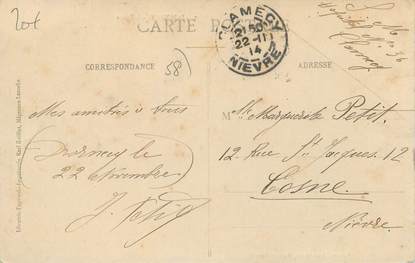 20t
CARTE POSTALE
CLAMECY
22-11
14
NIEVRE
CORRESPONDANCE
58
ADRESSE
Mes amitiés à tous
Dornecy le
22 Novembre
J. Petit
Mlle Marguerite Petit.
12 Rue St Jacques. 12
Cosne.
Nièvre